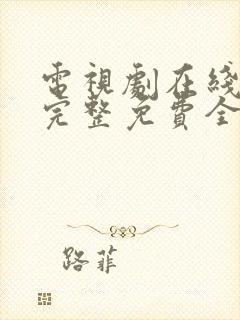 電視劇在綫
完整免費全
路菲